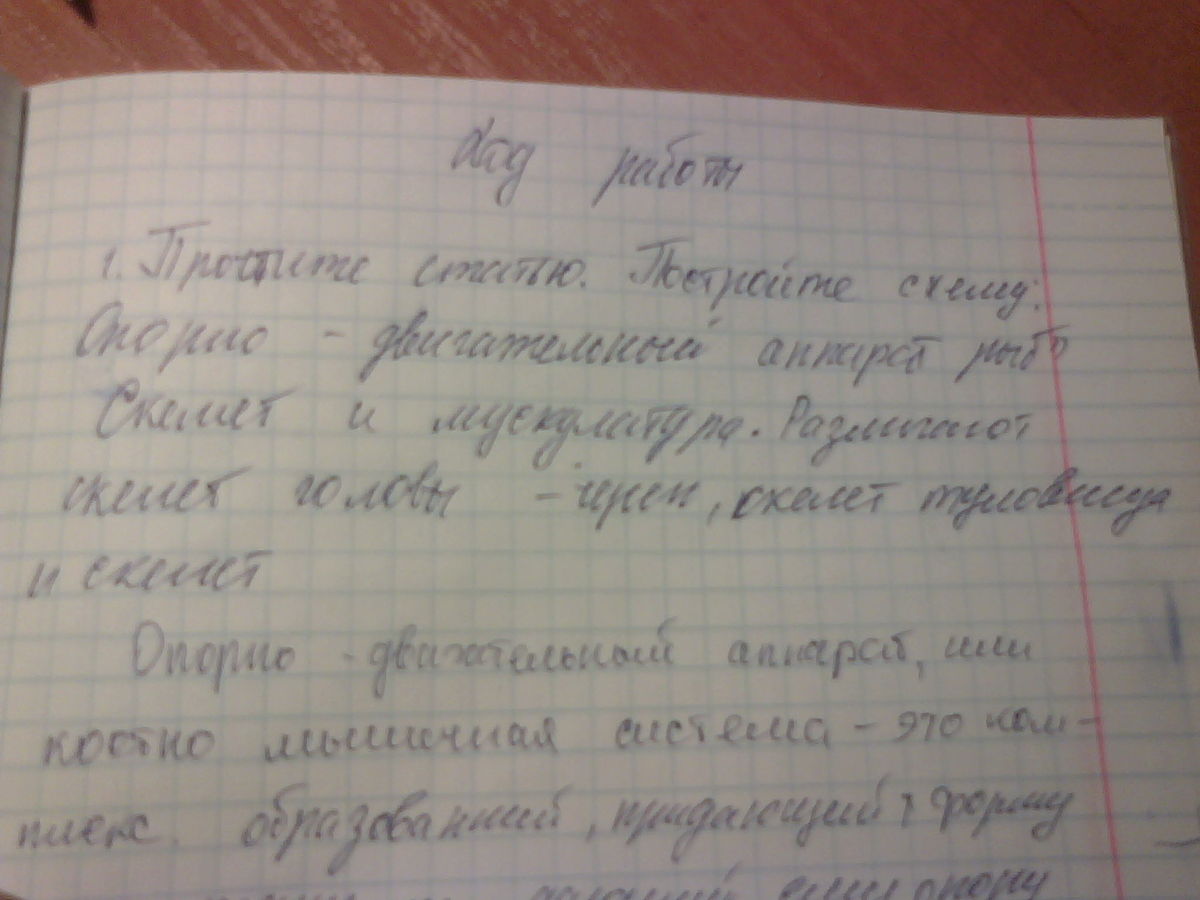 Ход работы
1. Простите статью. Постройте схему:
Опорно - двигательный аппарат рыб
Скелет и мускулатура. Различают
скелет головы - череп, скелет туловища
и скелет
Опорно - двигательный аппарат, или
костно мышичная система - это ком-
плекс образований, придающий форму
дающий опору